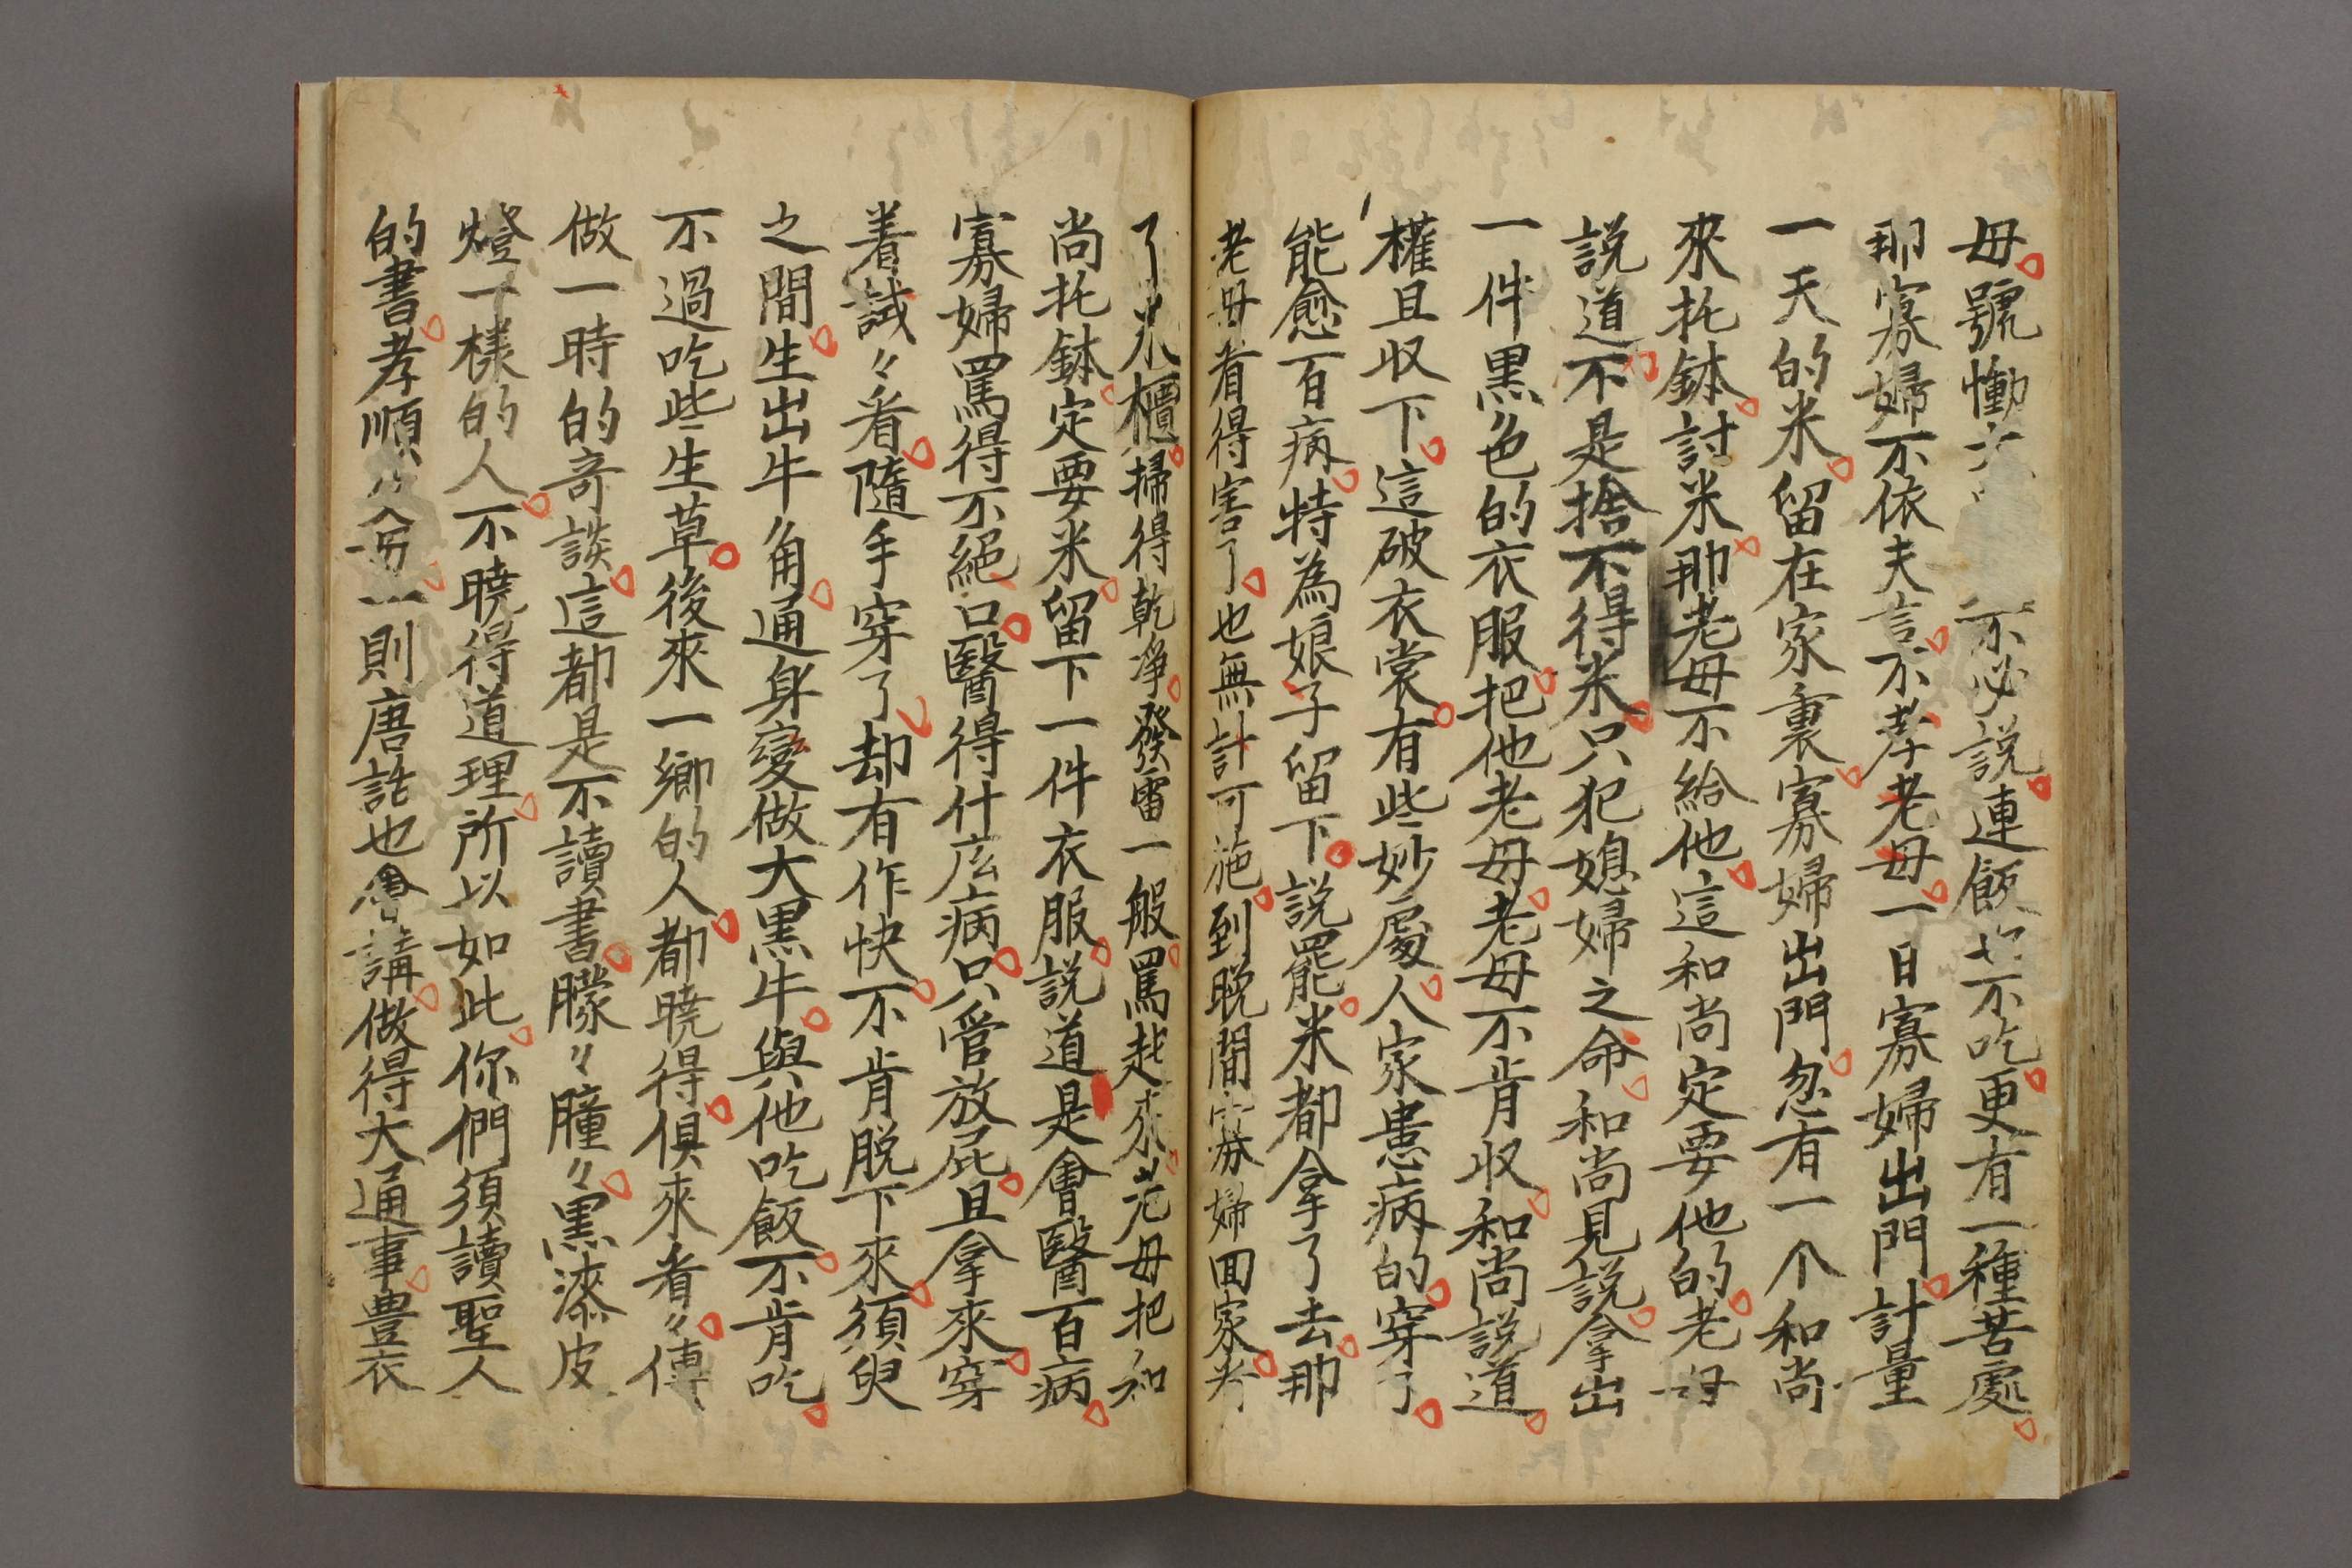 母號慟大不必説連飯也不吃更有一種苦處
那寡婦不依夫言不孝老母一日寡婦出門計量
一天的米留在家裏寡婦出門忽有一个和尚
來托鉢討米那老母不給他這和尚定要他的老母
説道不是捨不得米只犯媳婦之命和尚見説拿出
一件黒色的衣服把他老母老母不肯収和尚説道
權且収下這破衣裳有些妙處人家患病的穿了
能愈百病特為娘子留下説罷米都拿了去那
老母看得害了也無計可施到晩間寡婦回家考
了米櫃掃得乾凈發雷一般罵起來老母把和
尚托鉢定要米留下一件衣服説道是會醫百病
寡婦罵得不絕口醫得什庅病只管放屁且拿來穿
着試々看隨手穿了却有作快不肯脱下來須臾
之間生出牛角通身變做大黒牛與他吃飯不肯吃
不過吃些生草後來一鄉的人都曉得俱來看々傳
做一時的奇談這都是不讀書朦々朣々黒漆皮
燈一樣的人不曉得道理所以如此你們須讀聖人
的書孝順父母一則唐話也會講做得大通事豊衣